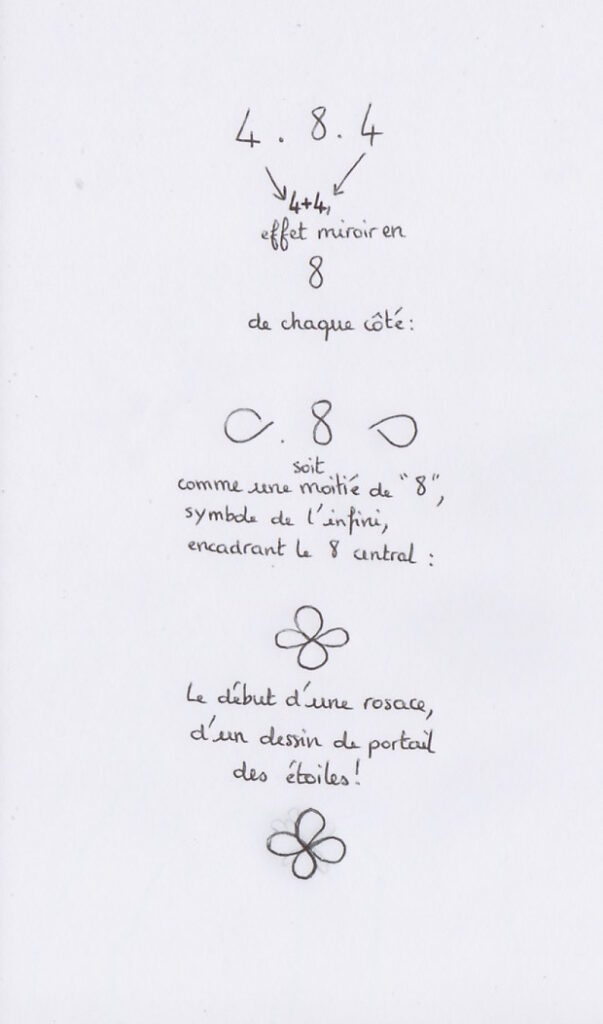 4 . 8 . 4
4+4,
effet miroir en
8
de chaque côté :
. 8
soit
comme une moitié de "8",
symbole de l'infini,
encadrant le 8 central :
Le début d'une rosace,
d'un dessin de portail
des étoiles !